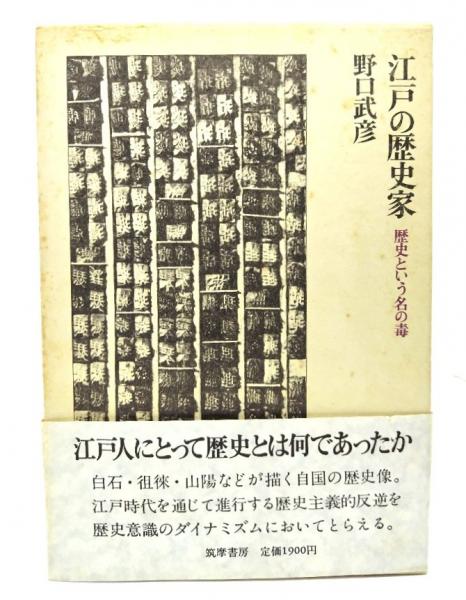 江戸の歴史家
歴史という名の毒
野口武彦
江戸人にとって歴史とは何であったか
白石・徂徠・山陽などが描く自国の歴史像。
江戸時代を通じて進行する歴史主義的反逆を
歴史意識のダイナミズムにおいてとらえる。
筑摩書房 定価1900円